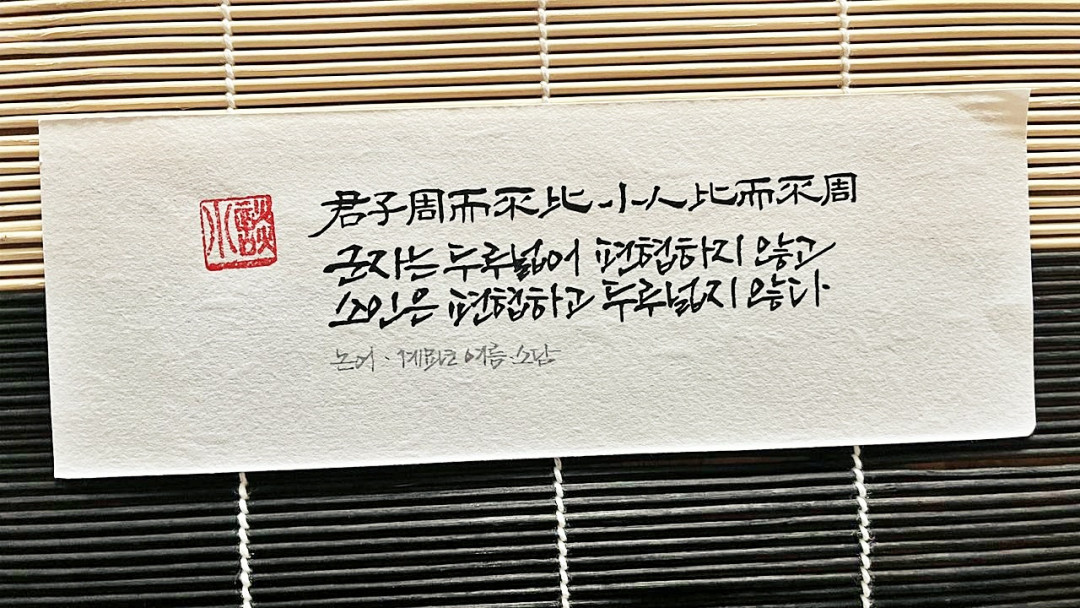 小談
君子周而不比 小人比而不周
군자는 두루넓어 편협하지 않고
소인은 편협하고 두루넓지 않다.
논어 · 계묘년 여름 · 소담